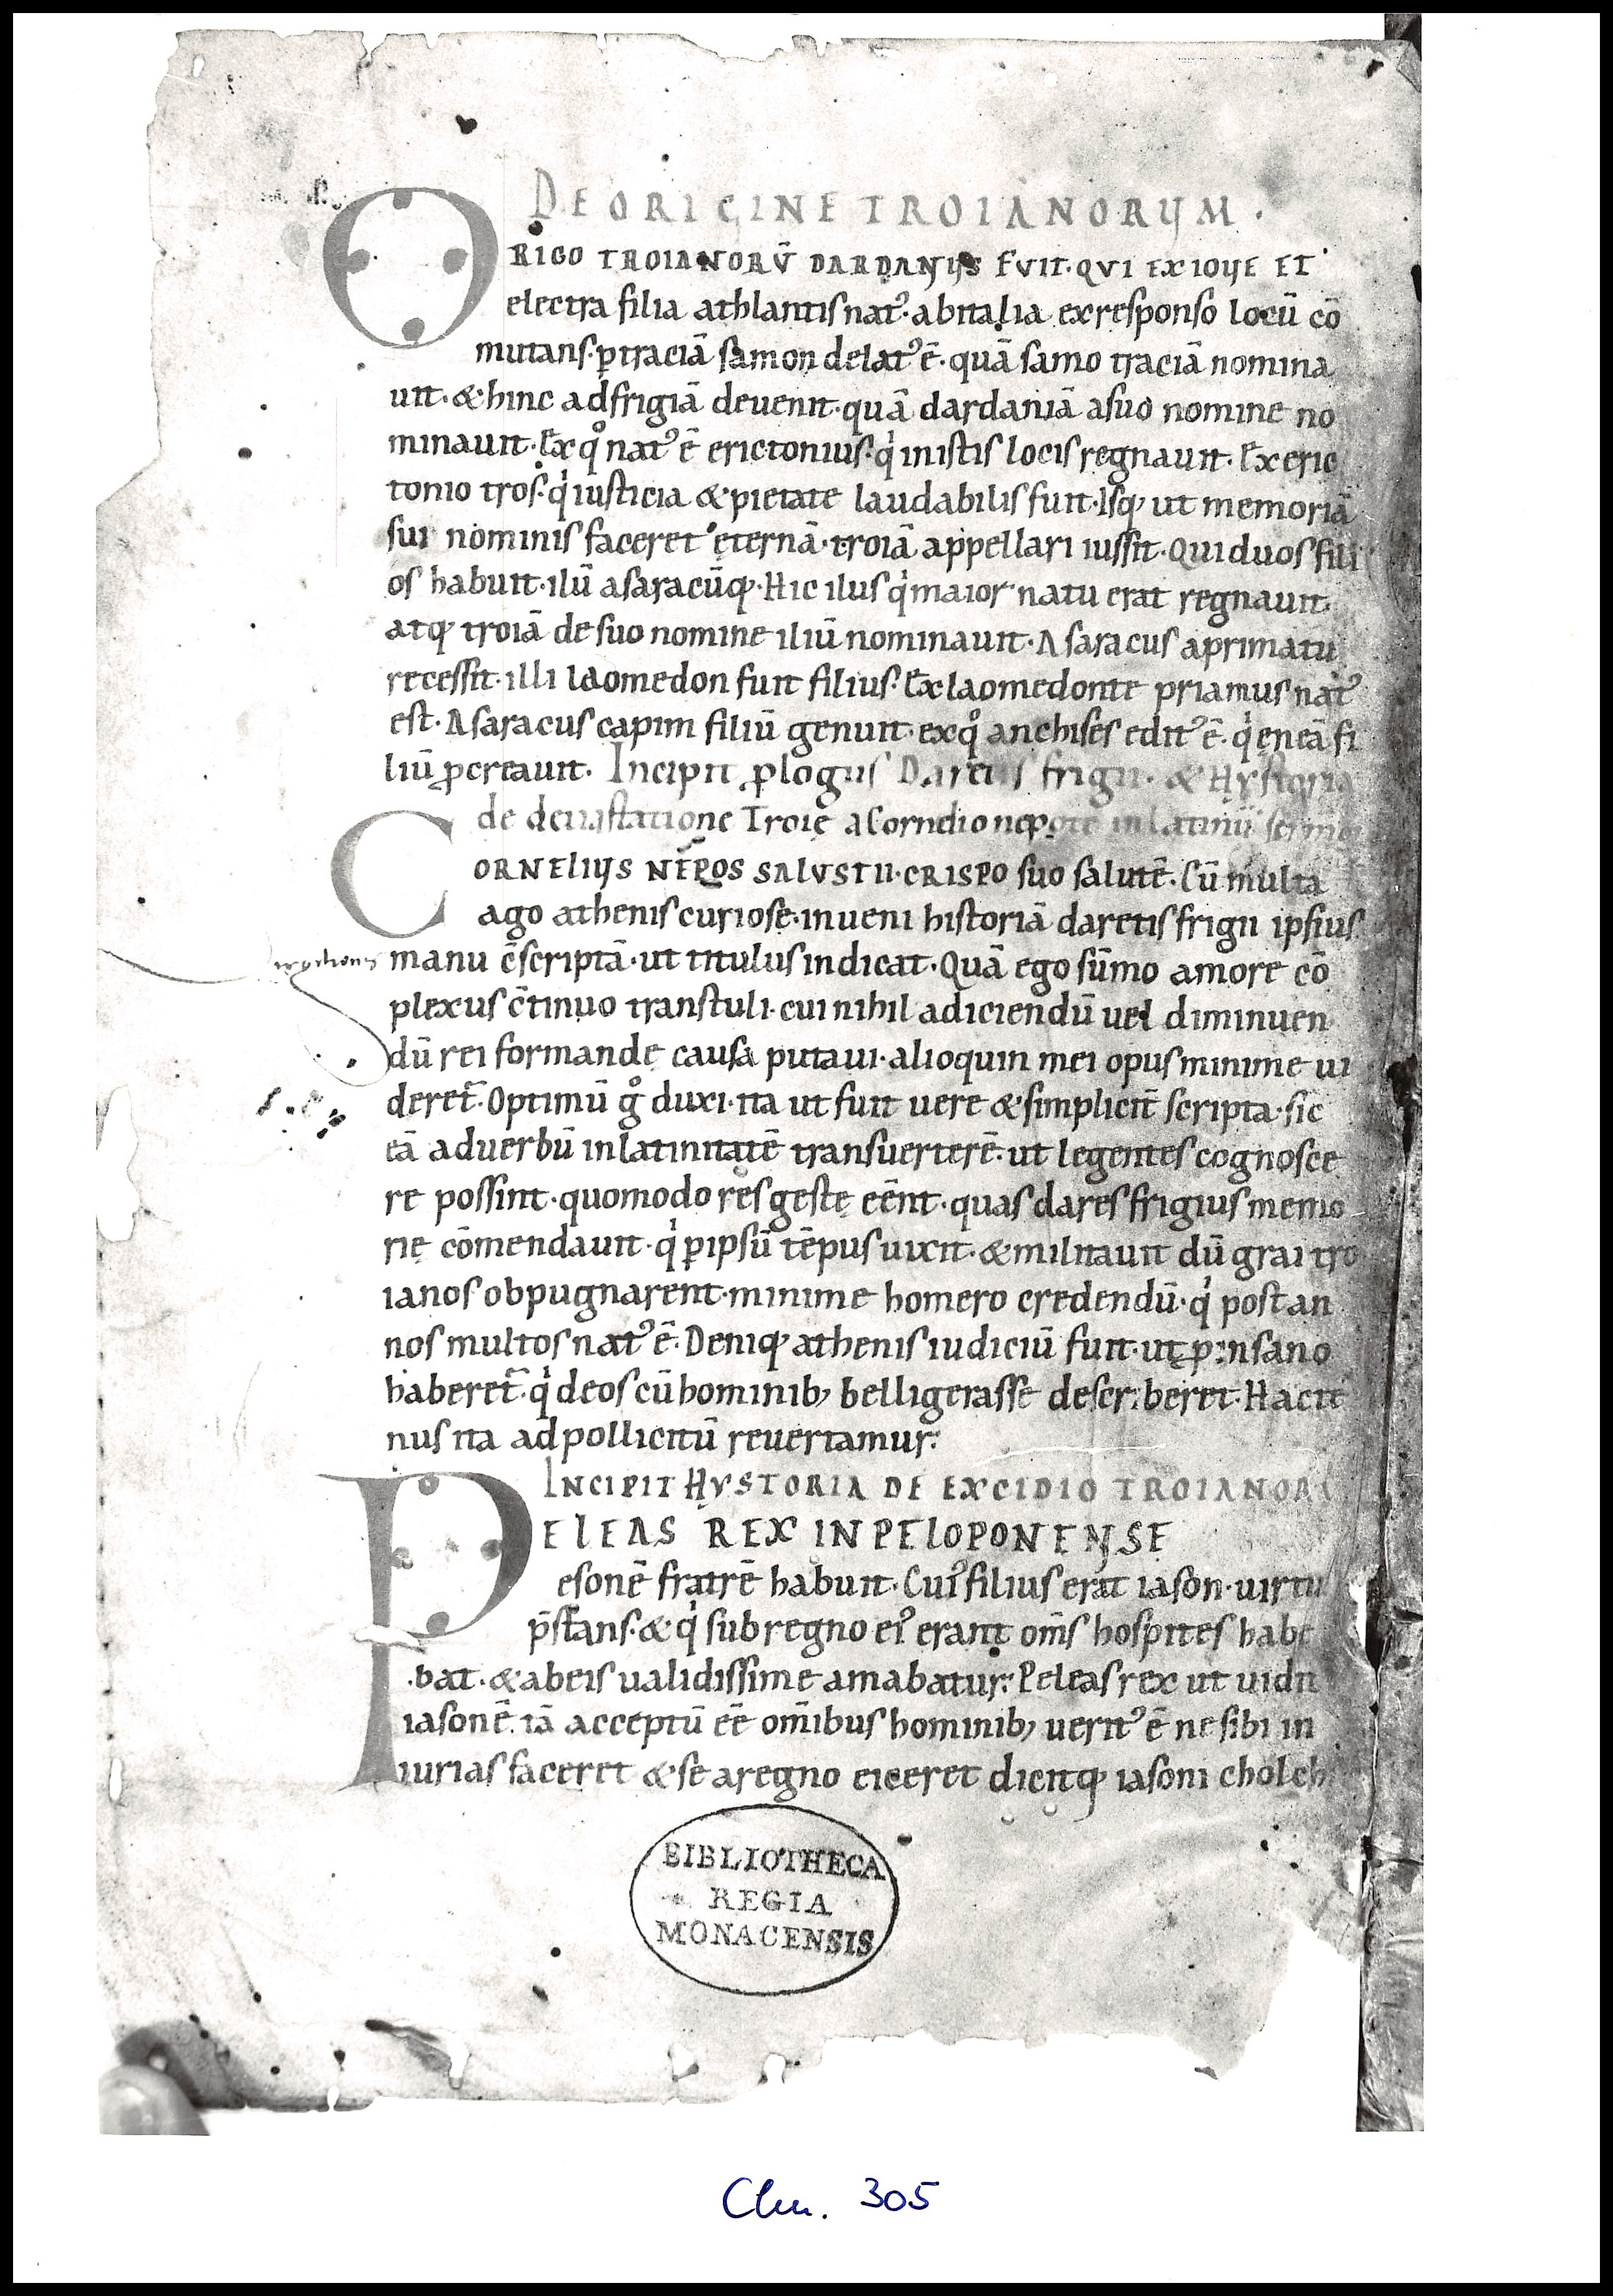 DE ORIGINE TROIANORUM.
ORIGO TROIANORŪ DARDANUS FVIT. QVI EX IOUE ET
electra filia athlantis nat᾽. ab italia ex responso locū cō
mutans. ꝑ traciā samon delat᾽ ē. quā samo traciā nomina
uit. & hinc ad frigiā deuenit. quā dardaniā a suo nomine no
minauit. Ex qͦ nat᾽ ē erictonius. qͥ in istis locis regnauit. Ex eric
tonio tros. qͥ iusticia & pietate laudabilis fuit. Isq; ut memoriā
sui nominis faceret ęternā. troiā appellari iussit. Qui duos fili
os habuit. ilū asaracūq;. Hic ilus qͥ maior natu erat regnauit.
atq; troiā de suo nomine iliū nominauit. Asaracus a primatu
recessit. illi laomedon fuit filius. Ex laomedonte priamus nat᾽
est. Asaracus capim filiū genuit. ex qͦ anchises edit᾽ ē. qͥ ęneā fi
liū ꝓcreauit. Incipit ꝓlogus Daretis frigii. & Hystoria
de deuastatione Troię a Cornelio nepote in latinū
CORNELIUS NEPOS SALVSTII. CRISPO suo salutē. Cū multa
ago athenis curiose. inueni historiā daretis frigii ipsius
manu c̄scriptā. ut titulus indicat. Quā ego sūmo amore cō
plexus c̄tinuo transtuli. cui nihil adiciendū uel diminuen
dū rei formandę causa putaui. alioquin mei opus minime ui
deret̄. Optimū gͦ duxi. ita ut fuit uere & simplicit̄ scripta. sic
eā ad uerbū in latinitatē transuerterē. ut legentes cognosce
re possint. quomodo res gestę eēnt. quas dares frigius memo
rię cōmendauit. qͥ ꝑ ipsū tēpus uixit. & militauit dū grai tro
ianos obpugnarent. minime homero credendū. qͥ post an
nos multos nat᾽ ē. Deniq; athenis iudiciū fuit. ut ꝓ insano
haberet̄. qͥ deos cū hominib; belligerasse describeret. Hacte
nus ita ad pollicitū reuertamur.
INCIPIT HYSTORIA DE EXCIDIO TROIANORV
PELEAS REX IN PELOPONENSE
esonē fratrē habuit. Cui᾽ filius erat iason. uirtu
p̄stans. & qͥ sub regno ei᾽ erant om̄s hospites habe
bat. & ab eis ualidissime amabatur. Peleas rex ut uidit
iasonē. iā acceptū eē om̄ibus hominib; uerit᾽ ē ne sibi in
iurias faceret & se a regno eiceret dicitq; iasoni cholch
BIBLIOTHECA
REGIA
MONACENSIS
Clm. 305